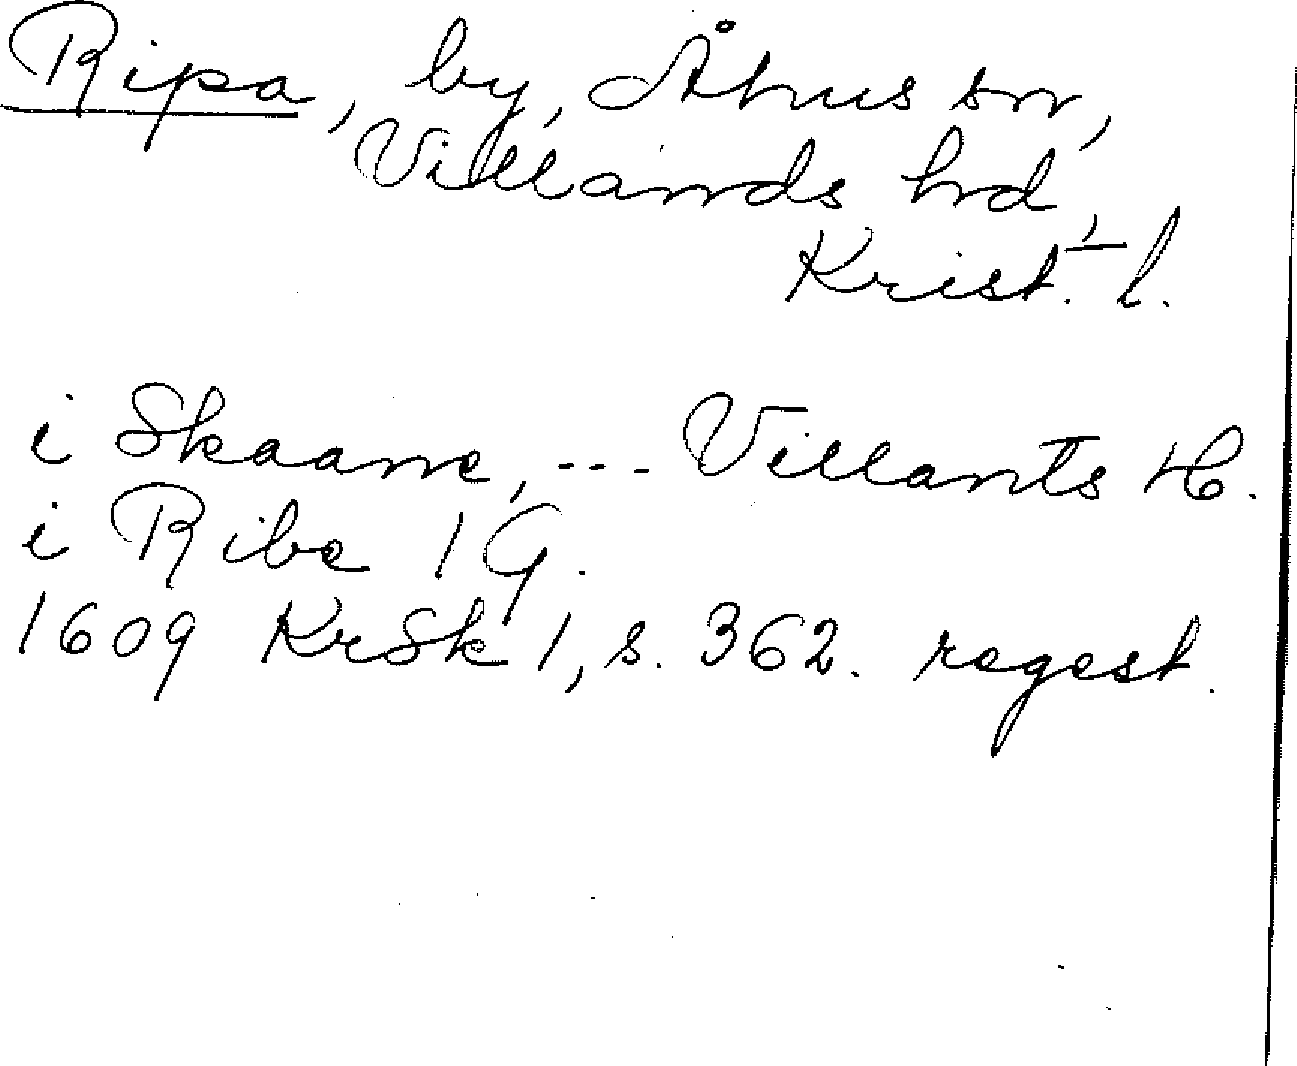 Ripa, by, Åhus sn,
Villands hd,
Krist. l.
i Skaane, --- Villants H.
i Ribe 1 G.
1609 KrSk 1, s. 362. regest.